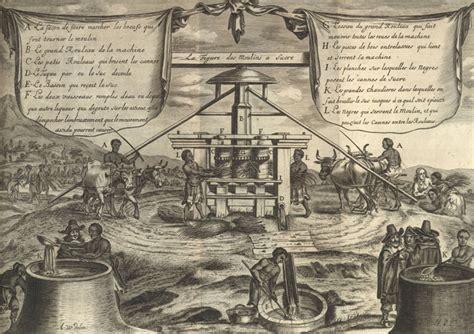 La Figure des Moulins a Sucre
A La façon de faire marcher les boeufs qui
font tourner le moulin
B Le grand Rouleau de la machine
C Les petits Rouleaux qui brisent les cannes
D Le tuyau par ou le Suc decoule
E Le Bassin qui reçoit le suc
F Les deux vaisseaux remplis d'eau ou de
quu autre liqueur qui degoute sur les
d'empecher l'embrasement que le mouvement
pourroit causer
G L'essieu du grand Rouleau qui fait
mouvoir toutes les roues de la machine
H Les pieces de bois entrelassées qui lient
et serrent la Machine
I Les planches sur lesquelles les Negres
posent les cannes de Sucre
K Les grandes chaudieres dans lesquelles on
fait bouillir le Suc jusques à ce qu'il soit épaissi
L Les Negres qui servent le Moulin, et qui
poussent les Cannes entre les Rouleaux
A
A
B
C
D
E
F
F
G
H
I
K
L
L